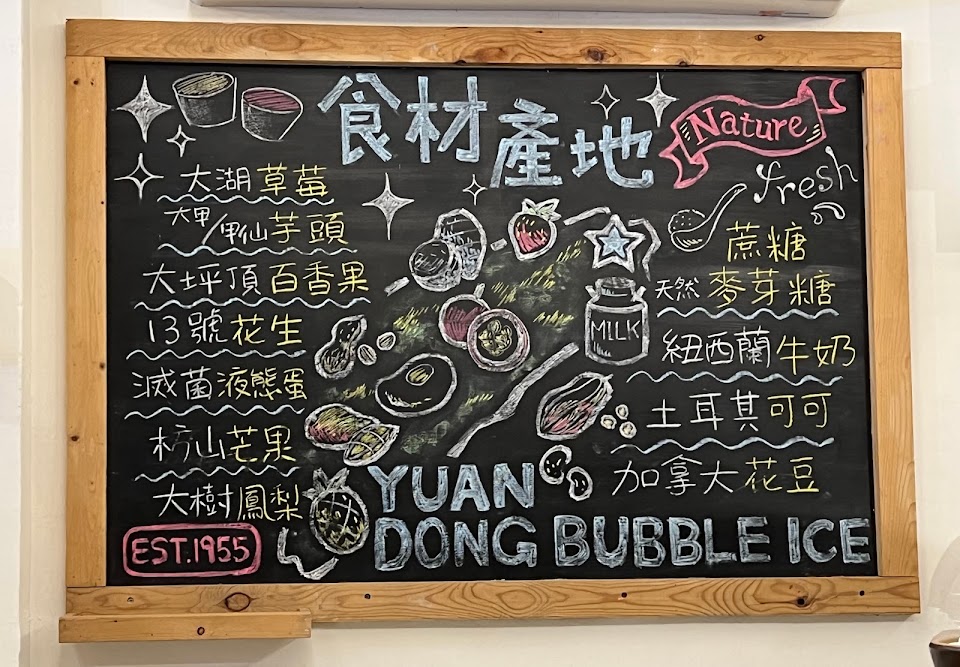 食材產地
Nature
fresh
大湖草莓
大甲/甲仙芋頭
大坪頂百香果
13號花生
滅菌液態蛋
枋山芒果
大樹鳳梨
EST.1955
蔗糖
天然麥芽糖
MILK
紐西蘭牛奶
土耳其可可
加拿大花豆
YUAN
DONG BUBBLE ICE